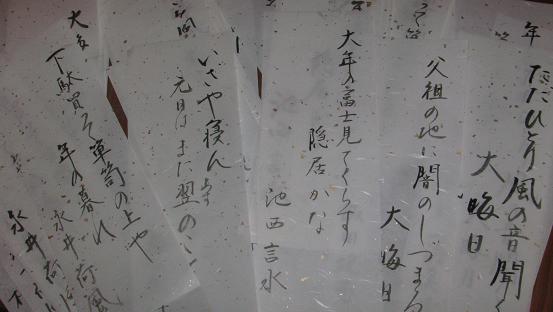 ただひとり風の音聞く
大晦日
父祖の地に闇のしづまる
大晦日
大年の富士見てくらす
隠居かな
池西言水
いさや寝ん
元日はまた翌のこ
下駄買て箪笥の上や
年の暮れ
永井荷風
永井